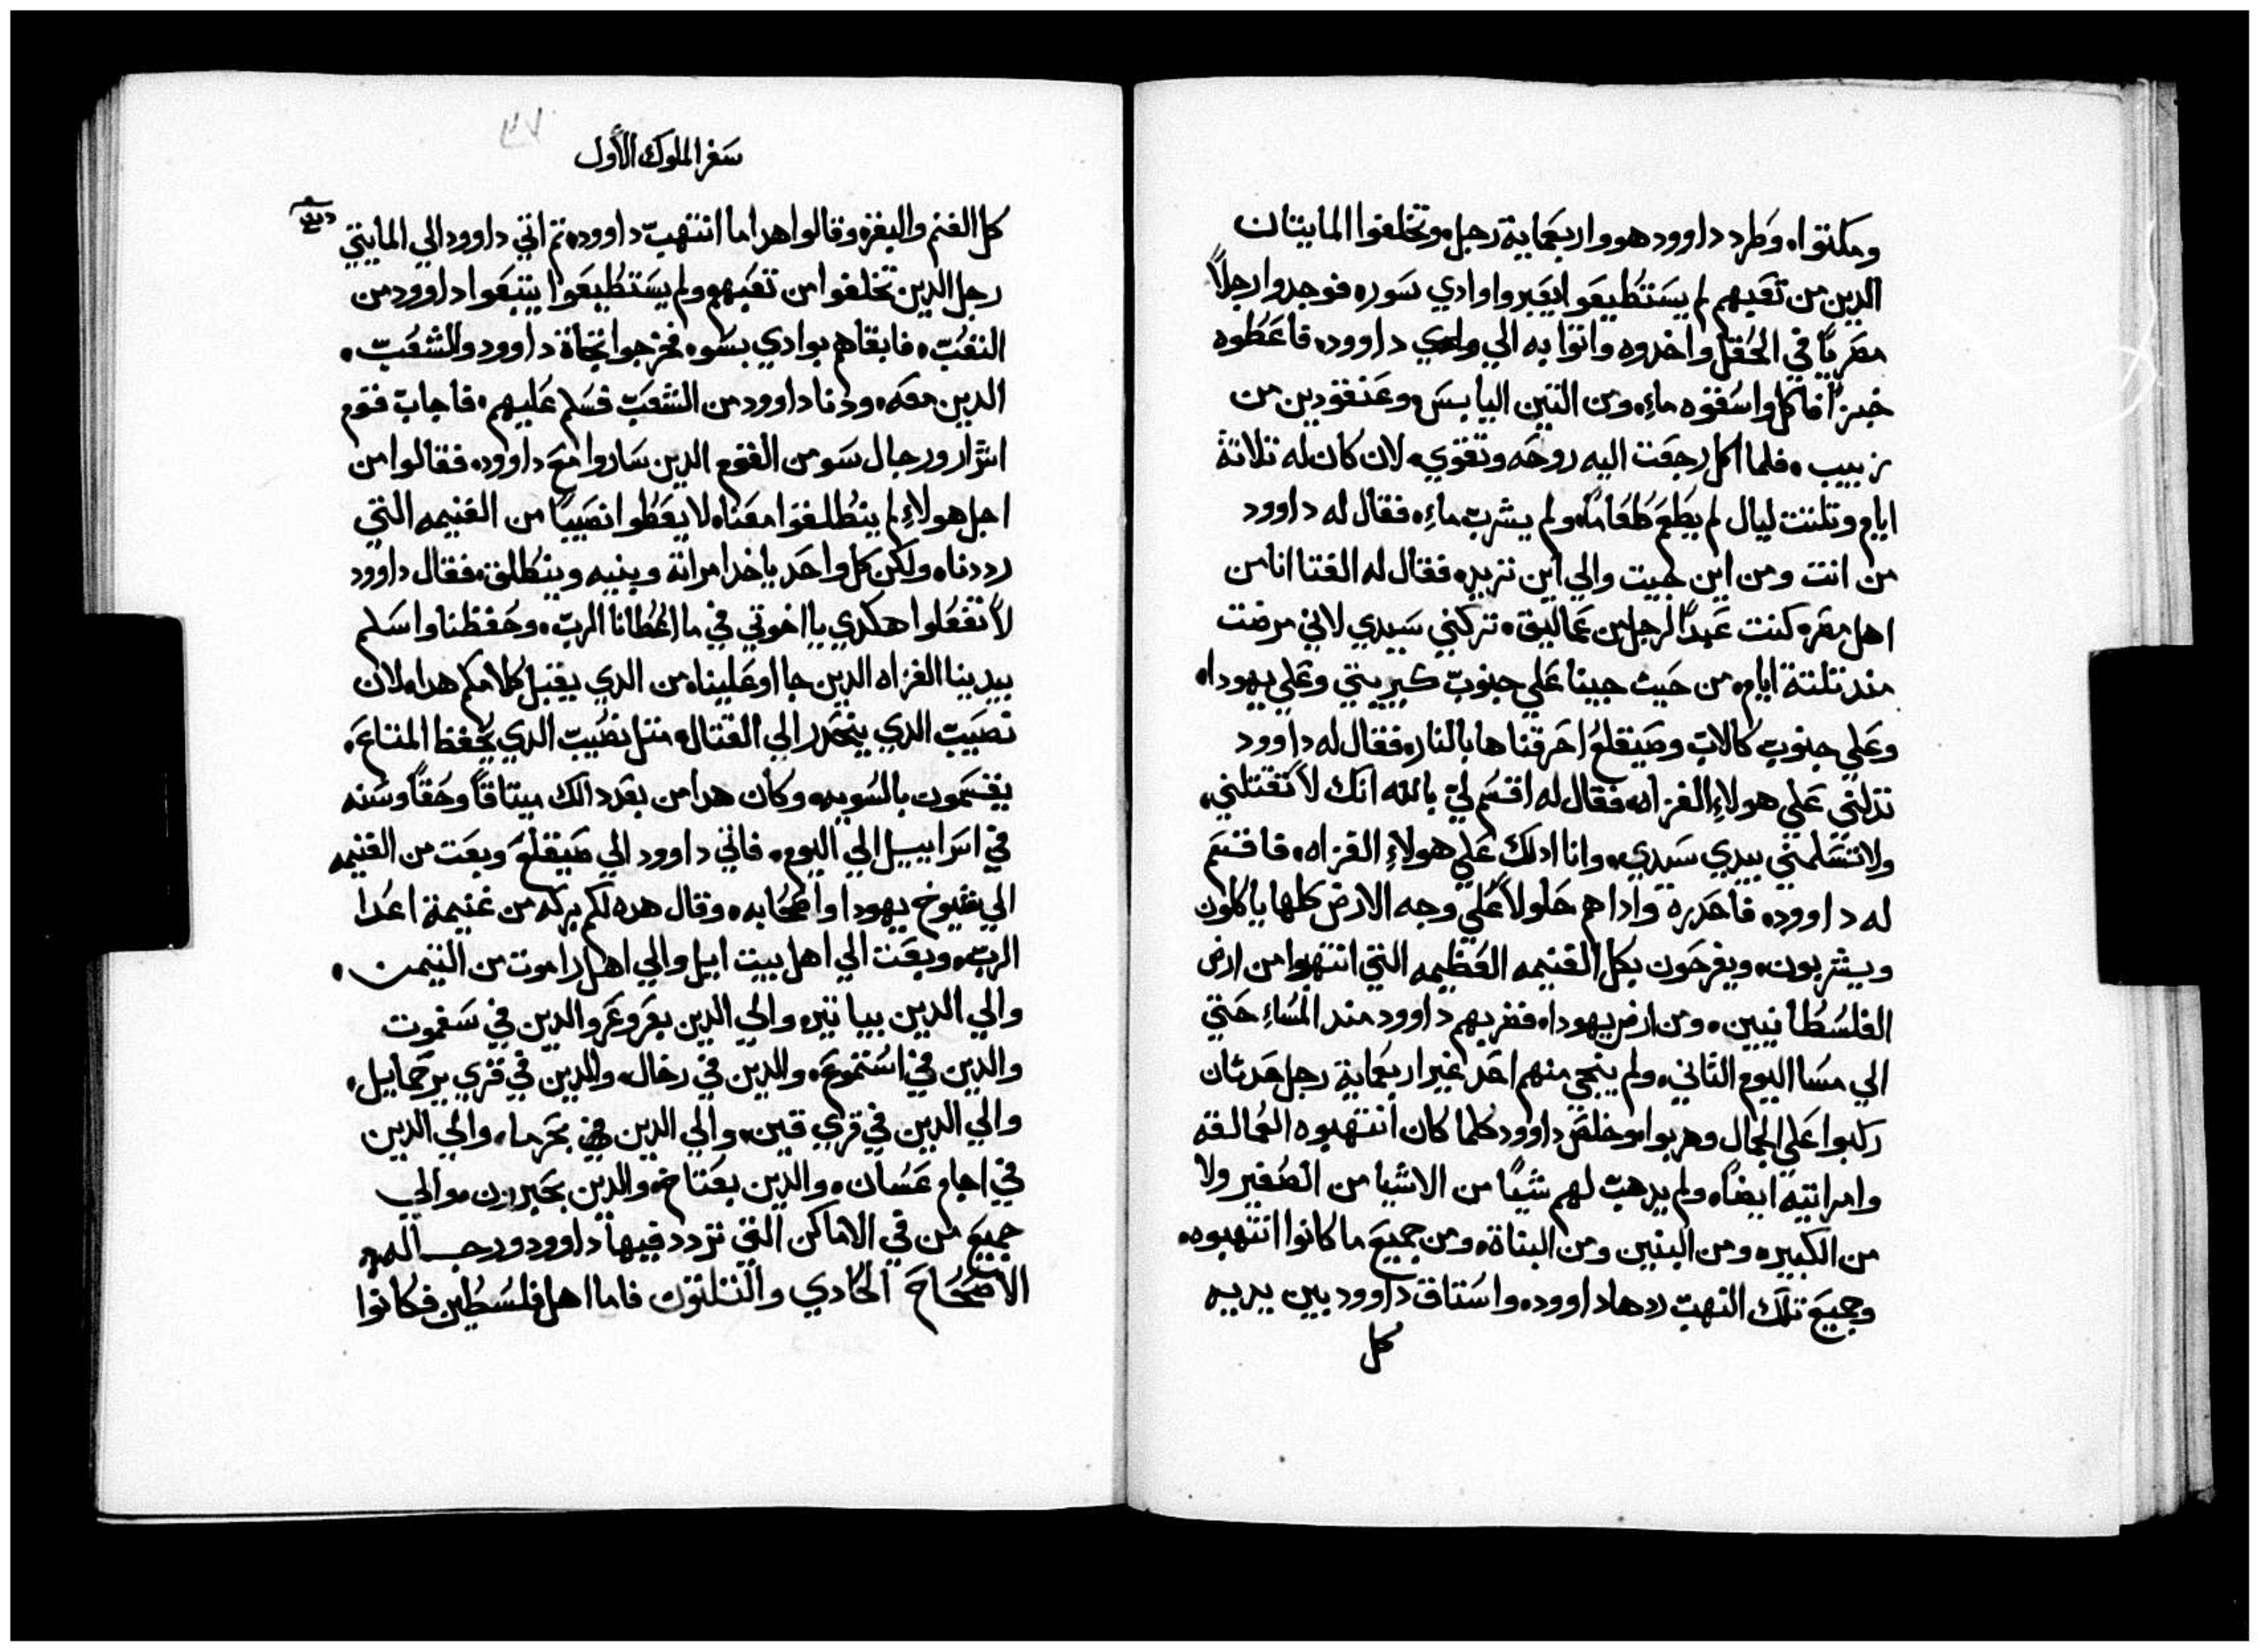 ومكثوا. وطرد داوود هو واربعماية رجل. وتخلفوا المايتان
الدين من تعبهم لم يستطيعوا يعبروا وادي سوره فوجدوا رجلاً
مصرياً في الحقل واخدوه واتوا به الي داوود. فاعطوه
خبزاً فاكل واسقوه ماءِ. ومن التين اليابس وعنقودين من
زبيب. فلما اكل رجعت اليه روحه وتقوي. لان كان له تلاتة
ايام وتلتت ليال لم يطعم طعاماً. ولم يشرب ماءِ. فقال له داوود
من انت ومن اين جيت والي اين تريد. فقال له الفتا انا من
اهل مصر. كنت عبداً لرجل من عماليق. تركني سيدي لاني مرضت
مند تلتة ايام. من حيث جينا علي جنوب كيريتي وعلي يهودا.
وعلي جنوب كالاب وصيقلغ احرقناها بالنار. فقال له داوود
تدلني علي هولاءِ الغزاه. فقال له اقسم لي بالله انك لا تقتلني.
ولا تسلمني بيدي سيدي. وانا ادلك علي هولاءِ الغزاه. فاقسم
له داوود. فاحدره واداهم حلولاً علي وجه الارض كلها ياكلون
ويشربون. ويفرحون بكل الغنيمه العظيمه التي انتهبوا من ارض
الفلسطانيين. ومن ارض يهودا. فضربهم داوود مند المساءِ حتي
الي مسا اليوم التاني. ولم ينجي منهم احد غير اربعماية رجل حدثان
ركبوا علي الجمال وهربوا. وخلص داوود كلما كان انتهبوه العمالقه
وامراتيه ايضاً. ولم يدهب لهم شياً من الاشيا من الصغير ولا
من الكبير. ومن البنين ومن البناة. ومن جميع ما كانوا انتهبوه.
وجميع تلك النهب ردها داوود. واستاق داوود بين يديه
كل
٣٧
سفر الملوك الأول
كل الغنم والبقر. وقالوا هدا ما انتهب داوود. تم اتي داوود الي المايتي
رجل الدين تخلفوا من تعبهم ولم يستطيعوا يتبعوا داوود من
التعب. فابقاهم بوادي بسوه. فخرجوا تجاة داوود والشعب.
الدين معه. ودنا داوود من الشعب فسلم عليهم. فاجاب قوم
اشرار ورجال سو من القوم الدين ساروا مع داوود. فقالوا من
اجل هولاءِ لم ينطلقوا معنا. لا يعطوا نصيباً من الغنيمه التي
رددنا. ولكن كل واحد ياخد امراته وبنيه وينطلق. فقال داوود
لا تفعلوا هكدي يا اخوتي في ما اعطانا الرب. وحفظنا واسلم
بيدينا الغزاه الدين جااو علينا. من الدي يقبل كلامكم هدا. لان
نصيب الدي ينحدر الي القتال. متل نصيب الدي يحفظ المتاع.
يقسمون بالسويه. وكان هدا من بعد دالك ميتاقاً وحقاً وسنه
في اسراييل الي اليوم. فاتي داوود الي صيقلغ وبعت من الغنيمه
الي شيوخ يهودا واصحابه. وقال هده لكم بركه من غنيمة اعدا
الرب. وبعت الي اهل بيت ايل والي اهل راموت من التيمن.
والي الدين بياتير. والي الدين بعروعر والدين في سفموت
والدين في استموع. والدين في رخال. والدين في قري يرحمايل.
والي الدين في قري قين. والي الدين في بحرما. والي الدين
في اجام عسان. والدين بعتاخ. والدين بحبرون. والي
جميع من في الاماكن التي تردد فيها داوود ورجاله.
الاصحاح الحادي والتلتون فاما اهل فلسطين فكانوا